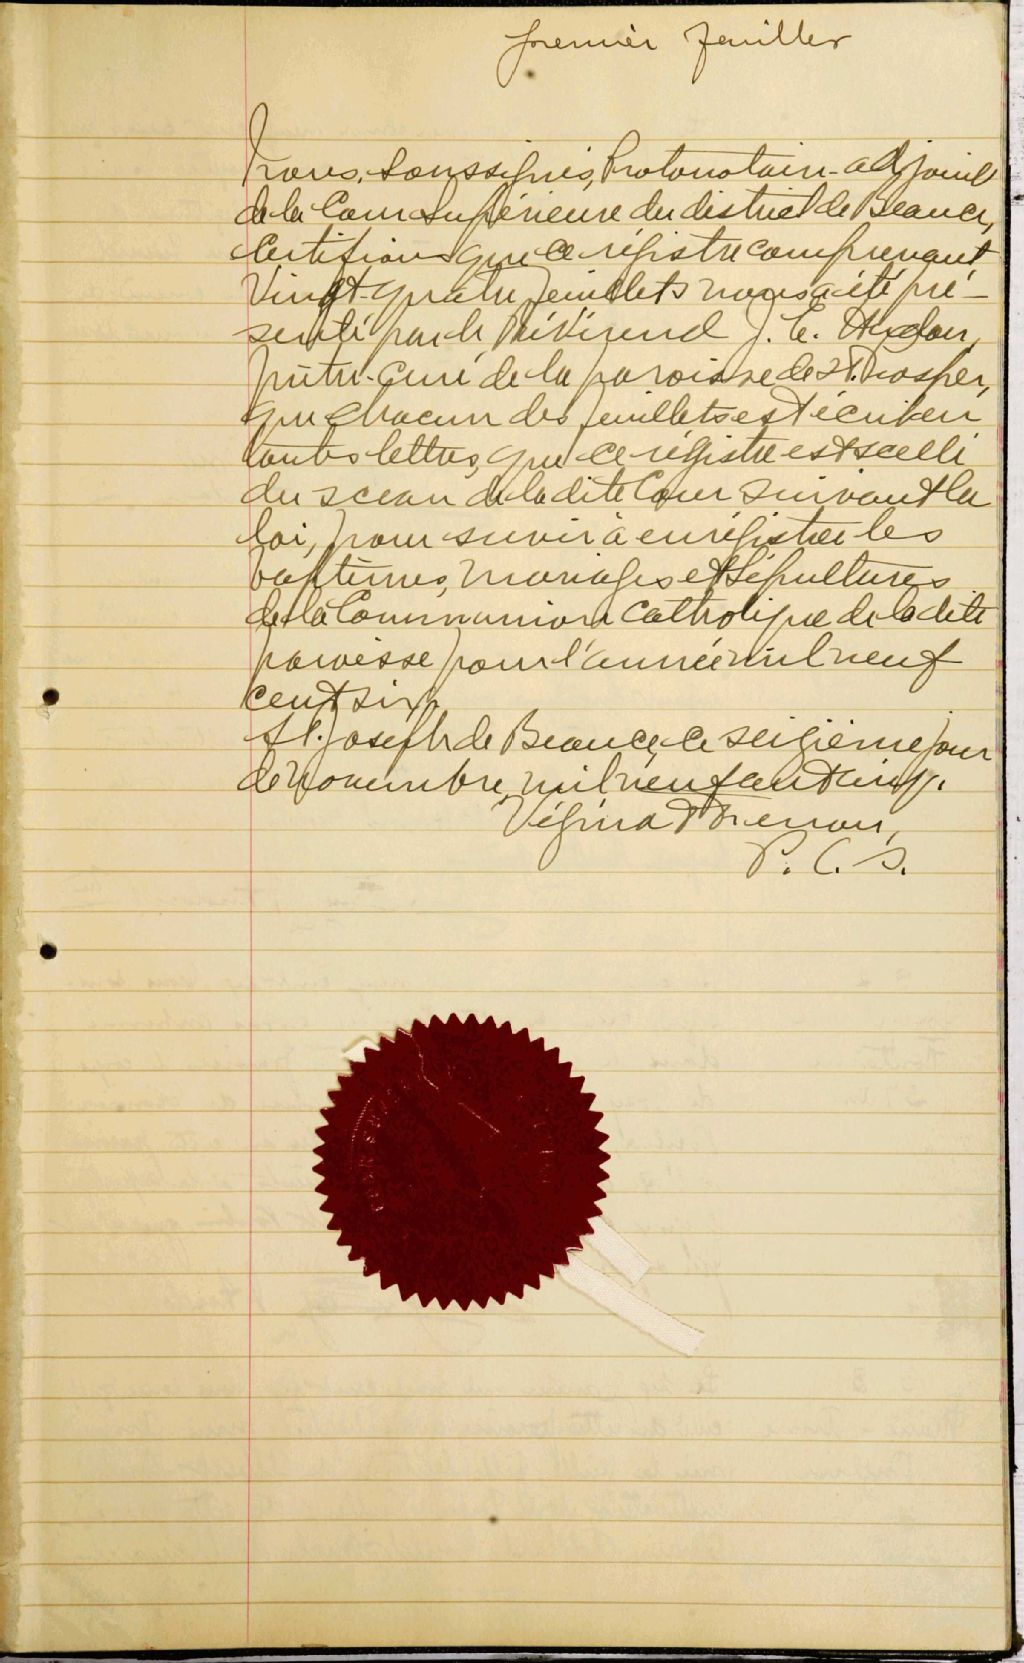 premier feuillet
Nous, Soussignés, Protonotaire-adjoint
de la Cour Supérieure du district de Beauce,
Certifions que ce régistre comprenant
Vingt-quatre feuillets nous a été pré-
senté par le Révérend J. E. Hudon,
prêtre-curé de la paroisse de St. Prosper,
que chacun des feuillets est écrit en
toutes lettres, que ce régistre est scellé
du sceau de la dite Cour suivant la
loi, pour servir à enrégistrer les
baptêmes, mariages et sépultures
de la Communion Catholique de la dite
paroisse pour l'année mil neuf
cent six.
St. Joseph de Beauce, ce seizième jour
de Novembre, mil neuf cent cinq.
Vézina &
P. C. S.